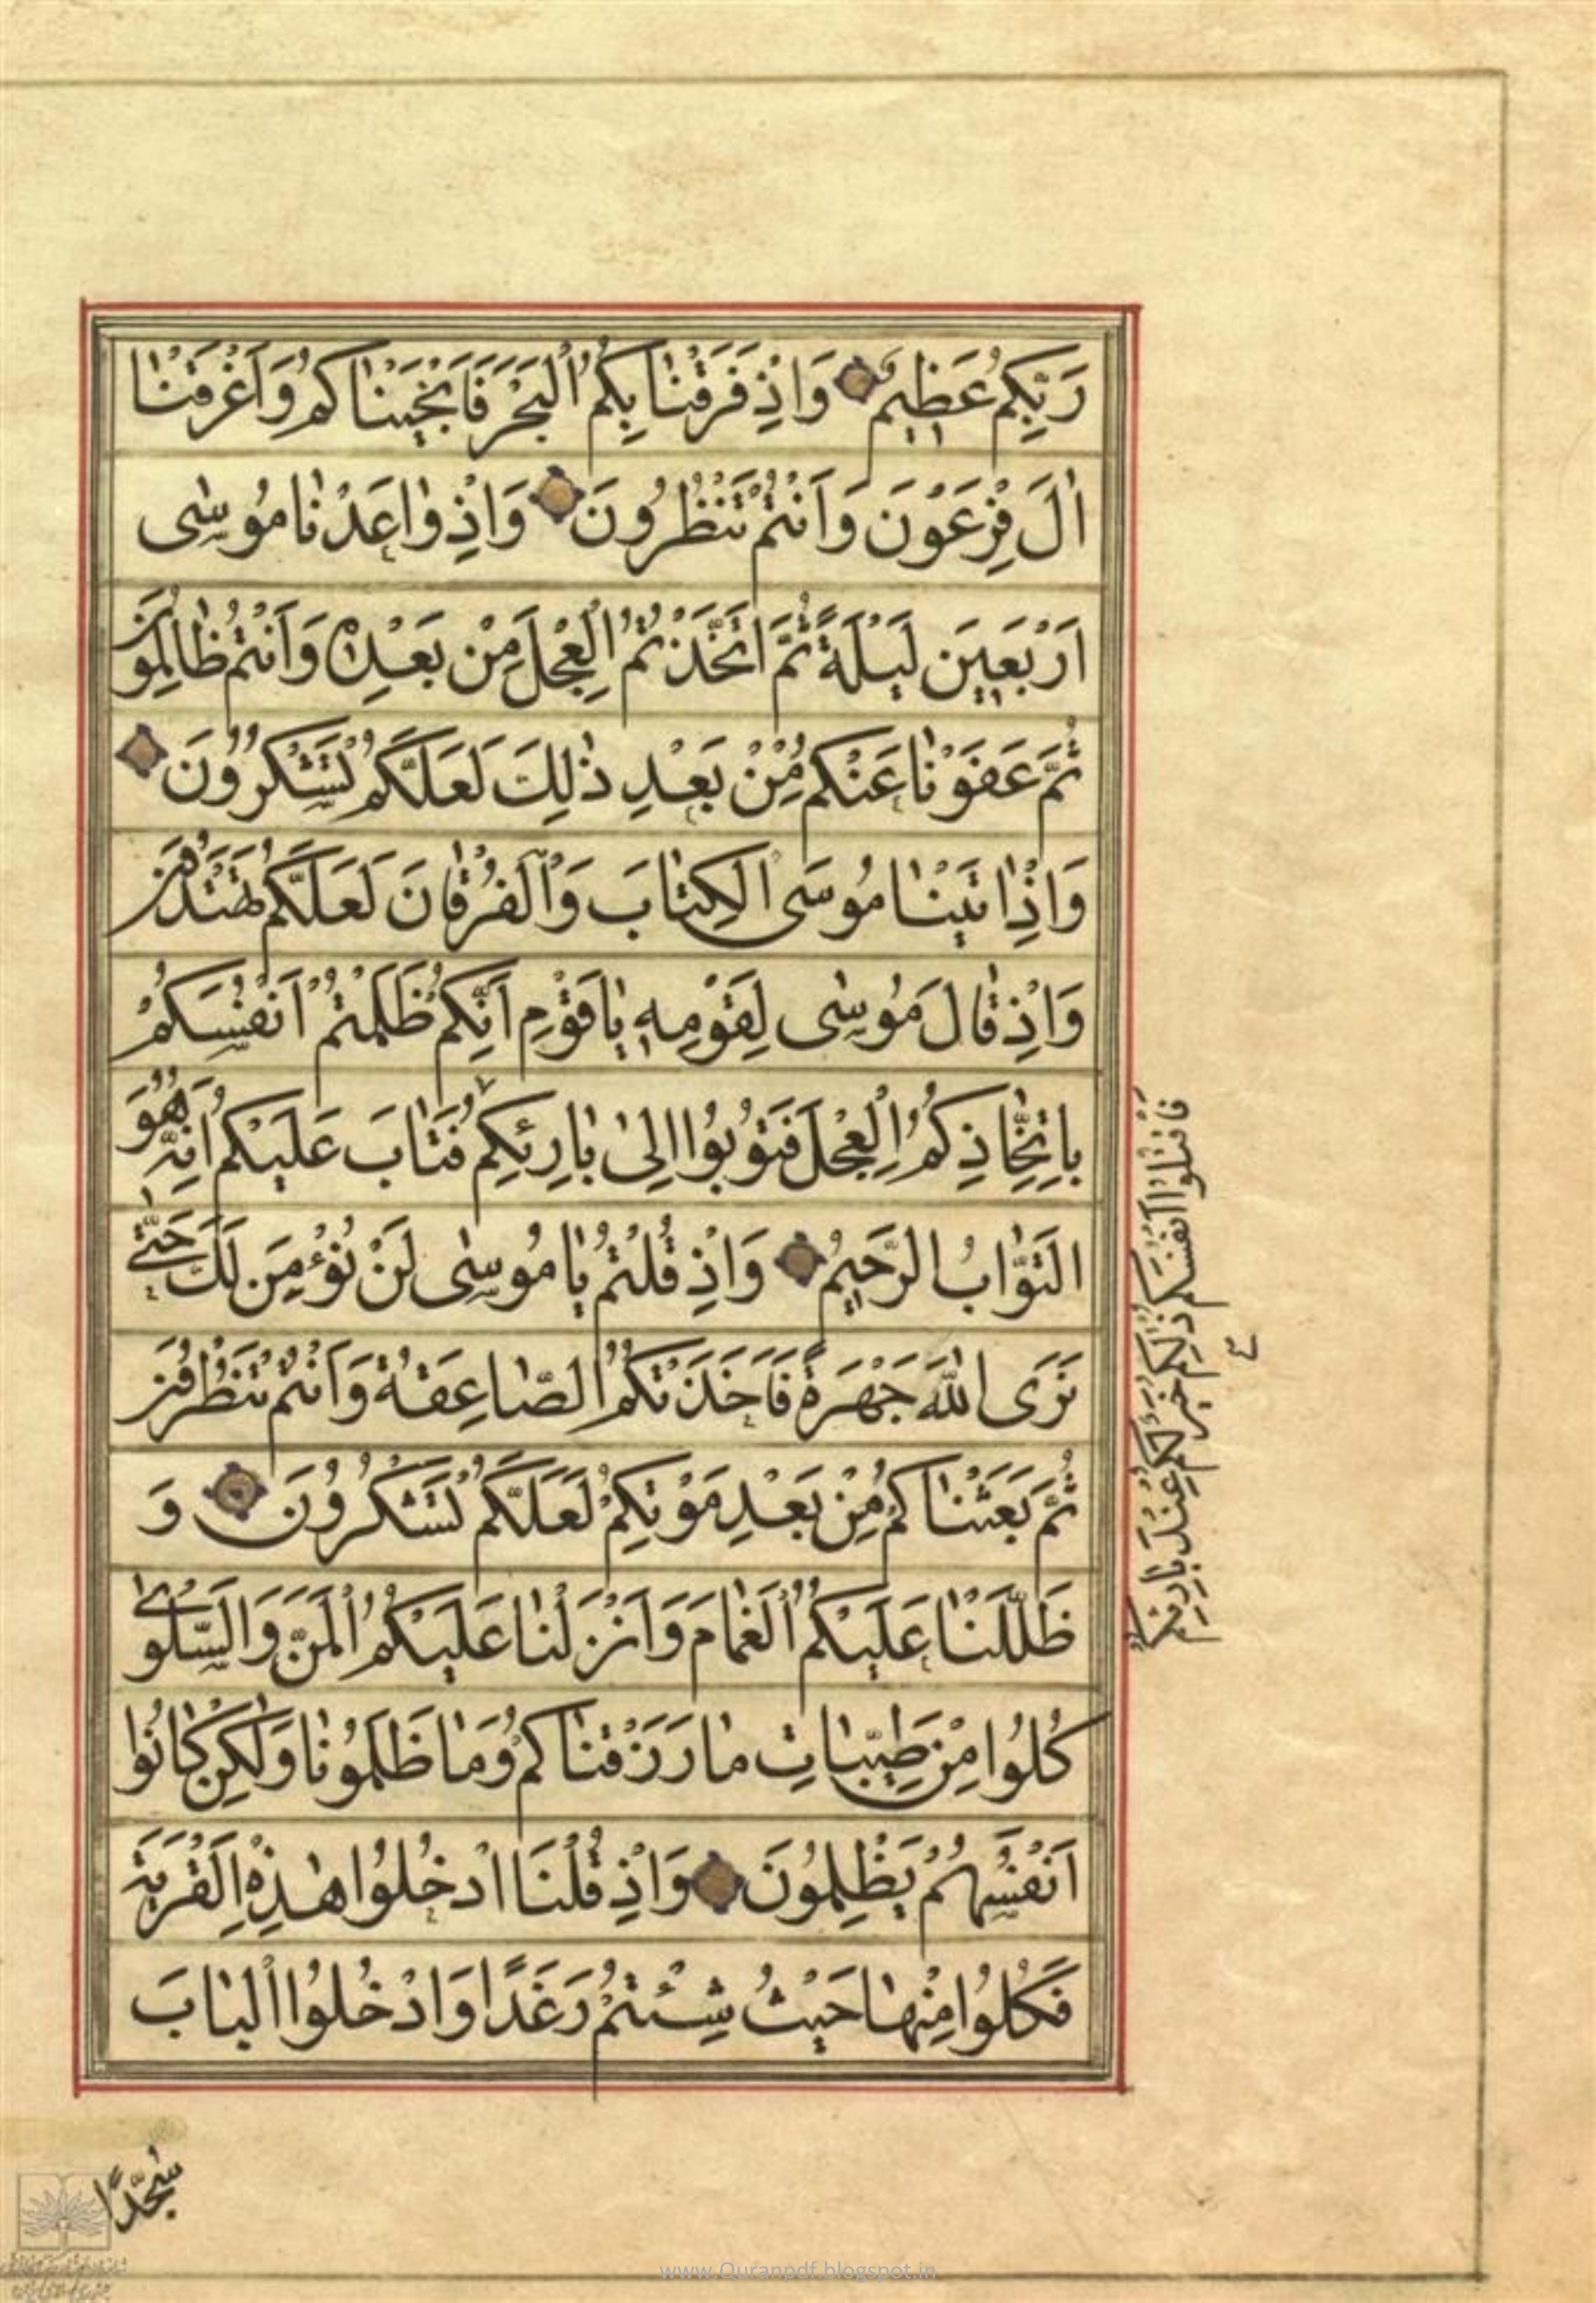 رَبِّكُمْ عَظِيمٌ وَاِذْ فَرَقْنَا بِكُمُ الْبَحْرَ فَاَنْجَيْنَاكُمْ وَاَغْرَقْنَا
اٰلَ فِرْعَوْنَ وَاَنْتُمْ تَنْظُرُونَ وَاِذْ وَاعَدْنَا مُوسٰى
اَرْبَعِينَ لَيْلَةً ثُمَّ اتَّخَذْتُمُ الْعِجْلَ مِنْ بَعْدِهِ وَاَنْتُمْ ظَالِمُونَ
ثُمَّ عَفَوْنَا عَنْكُمْ مِنْ بَعْدِ ذٰلِكَ لَعَلَّكُمْ تَشْكُرُونَ
وَاِذْ اٰتَيْنَا مُوسَى الْكِتَابَ وَالْفُرْقَانَ لَعَلَّكُمْ تَهْتَدُونَ
وَاِذْ قَالَ مُوسٰى لِقَوْمِهِ يَا قَوْمِ اِنَّكُمْ ظَلَمْتُمْ اَنْفُسَكُمْ
بِاتِّخَاذِكُمُ الْعِجْلَ فَتُوبُوا اِلٰى بَارِئِكُمْ فَتَابَ عَلَيْكُمْ اِنَّهُ هُوَ
التَّوَّابُ الرَّحِيمُ وَاِذْ قُلْتُمْ يَا مُوسٰى لَنْ نُؤْمِنَ لَكَ حَتّٰى
نَرَى اللّٰهَ جَهْرَةً فَاَخَذَتْكُمُ الصَّاعِقَةُ وَاَنْتُمْ تَنْظُرُونَ
ثُمَّ بَعَثْنَاكُمْ مِنْ بَعْدِ مَوْتِكُمْ لَعَلَّكُمْ تَشْكُرُونَ وَ
ظَلَّلْنَا عَلَيْكُمُ الْغَمَامَ وَاَنْزَلْنَا عَلَيْكُمُ الْمَنَّ وَالسَّلْوٰى
كُلُوا مِنْ طَيِّبَاتِ مَا رَزَقْنَاكُمْ وَمَا ظَلَمُونَا وَلٰكِنْ كَانُوا
اَنْفُسَهُمْ يَظْلِمُونَ وَاِذْ قُلْنَا ادْخُلُوا هٰذِهِ الْقَرْيَةَ
فَكُلُوا مِنْهَا حَيْثُ شِئْتُمْ رَغَدًا وَادْخُلُوا الْبَابَ
فَاقْتُلُوا اَنْفُسَكُمْ ذٰلِكُمْ خَيْرٌ لَكُمْ عِنْدَ بَارِئِكُمْ
سُجَّدًا
www.Quranpdf.blogspot.in